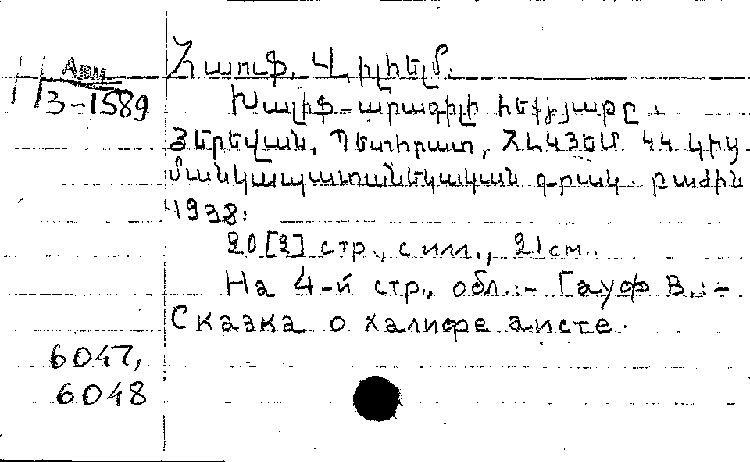 Հաուֆ, Վիլհելմ.
Н Арм
3-1589
Խալիֆ-արագիլի հեքյաթը.
Յերեվան, Պետհրատ, ՀԼԿՅԵՄ ԿԿ կից
մանկապատանեկական գրակ. բաժին
1938.
20 [2] стр., с илл., 21 см.
На 4-й стр. обл.:- Гауф В.:-
Сказка о халифе аисте.
6047,
6048